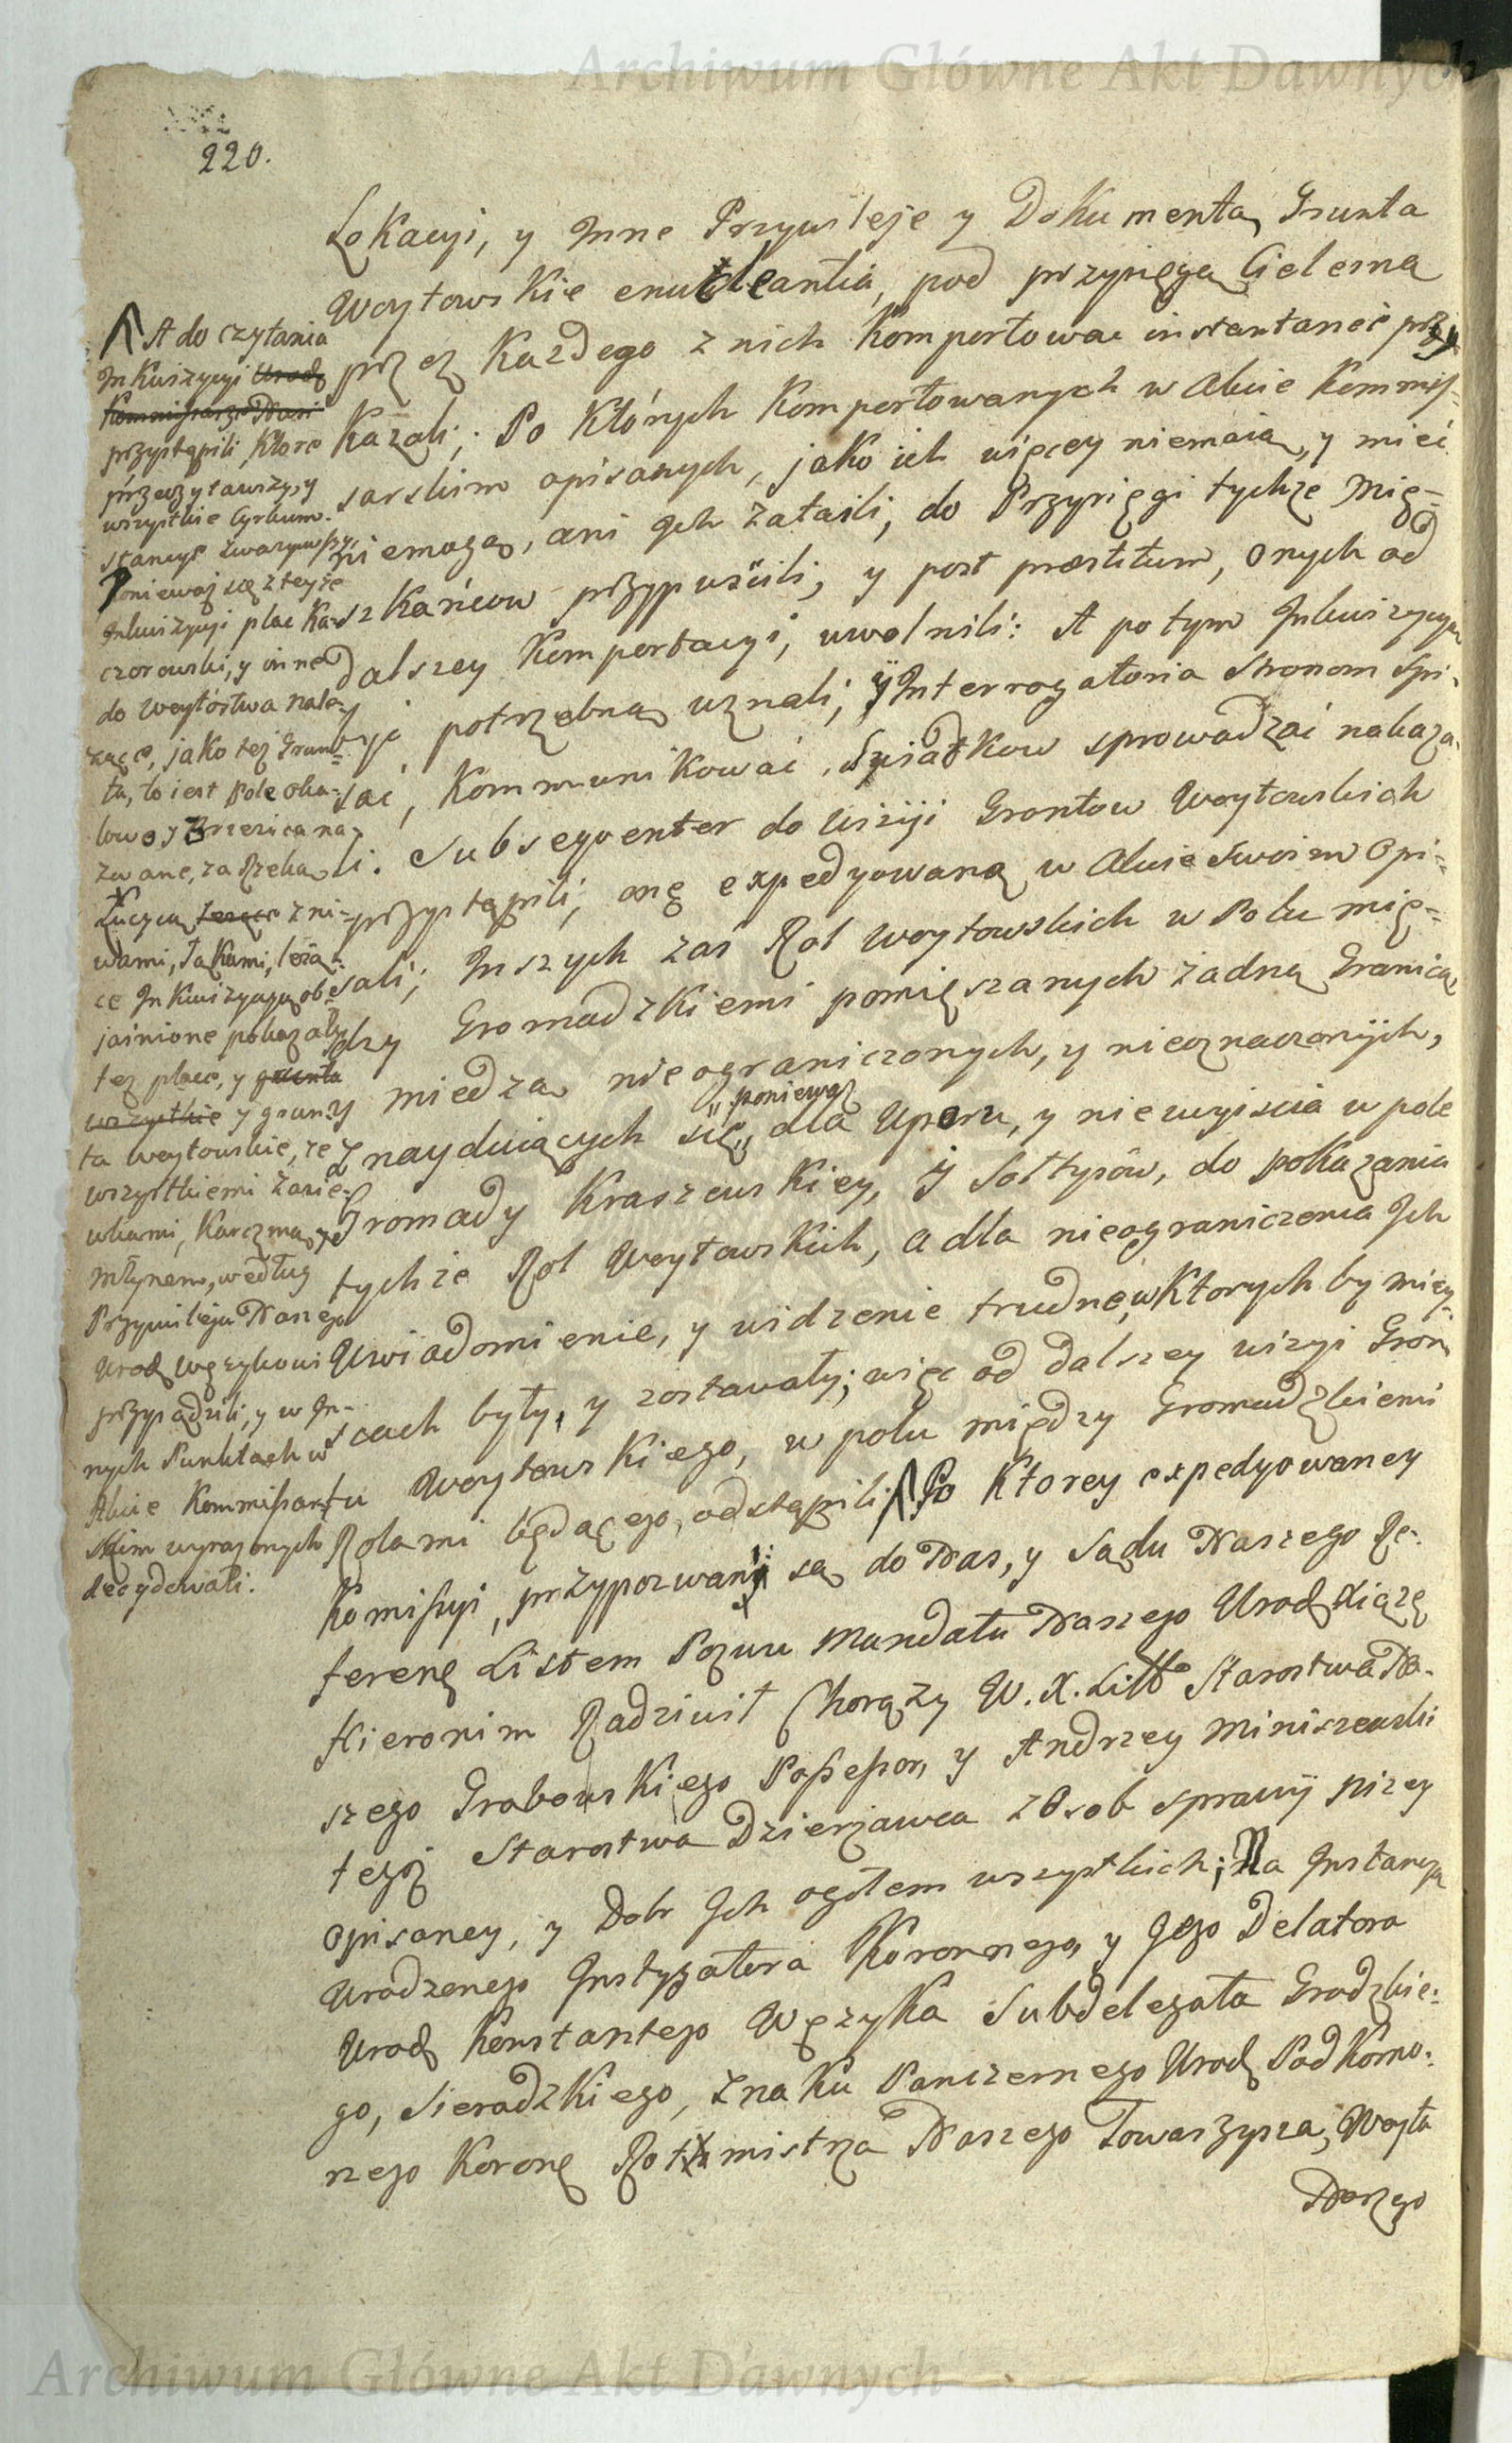 Archiwum Główne Akt Dawnych
220.
Lokacyi, y Jnne Przywileje y Dokumenta, Grunta
Woytowskie enucleantia, pod przysięgą Cielesną
przez Każdego z nich Komportowac instantaneè przy
Kazali; Po Których Komportowanych w Akcie Kommis=
sarskim opisanych, jako ich więcey niemaią, y mieć
niemogą, ani Jch zataili, do Przysięgi tychże Mię=
szkańcow przypuścili, y post præstitum, onych od
Dalszey Komportacyi, uwolnili: A potym Jnkwizycyą
potrzebną uznali, y Jnterrogatoria Stronom Spi=
sać, Kommunikować, Swiadkow sprowadzać nakaza=
li. Subsequenter do wizyi Grontow Woytowskich
przystąpili, onę expedyowaną w Akcie Swoim Opi=
sali; Jnszych zas Rol Woytowskich w Polu mię=
dzy Gromadzkiemi pomięszanych żadną Granicą
y miedzą nieograniczonych, y nieoznaczonych,
znayduiących się „poniewaz„ dla Uporu, y niewyiścia w pole
Gromady Kraszewskiey, y Sołtysów, do pokazania
tychże Rol Woytowskich, a dla nieograniczenia Jch
Uwiadomienie, y widzenie trudne, w Ktorych by miey=
scach były, y zostawały; więc od dalszey wizyi Gron=
tu Woytowskiego, w polu między Gromadzkiemi
Rolami będącego, odstąpili; Po Ktorey expedyowaney
Komissyi, przypozwani są do Nas, y Sądu Naszego Re=
feren Listem Pozwu Mandatu Naszego Urodz Xiąże
Hieronim Radziwił Chorązy W. X. Litt Starostwa Na=
szego Grabowskiego Possessor, y Andrzey Miniszewski
tegoż Starostwa Dzierzawca z Osob sprawy niżey
opisaney, y Dobr Jch ogołem wszystkich; Na Jnstancyą
Urodzenego Jnstygatora Koronnego, y Jego Delatora
Urodz Konstantego Węzyka Subdelegata Grodzkie=
go, Sieradzkiego, Znaku Pancernego Urodz Podkomo=
rzego Koron Rotmistrza Naszego Towarzysza, Woyta
Naszego
A do czytania
Jnkwizycyi Urodz
Kommissarze Nasi
przystąpili, Które
przeczytawszy, y
wszystkie Cyrkum=
stancye zwazywszy,
Poniewaz się z teyże
Jnkwizycyi plac Ka=
czorowski, y inne
do Woytostwa nale=
zące, jako też Grun=
ta, to iest Pole oko=
lowe y Brzezica na=
zwane, za Rzeką
Łuczycą zni=
wami, Łąkami, leżą=
ce Jnkwizycyą ob=
jaśnione pokazały
tez place, y grunta
wszystkie y grun=
ta woytowskie, ze
wszystkiemi Zasie=
wkami, Karczmą, y
Młynem, według
Przywileju Naszego
Urodz Węzykowi
przysądzili, y w Jn=
nych Punktach w
Akcie Kommissar=
skim wyrazonych
decydowali.
Archiwum Główne Akt Dawnych